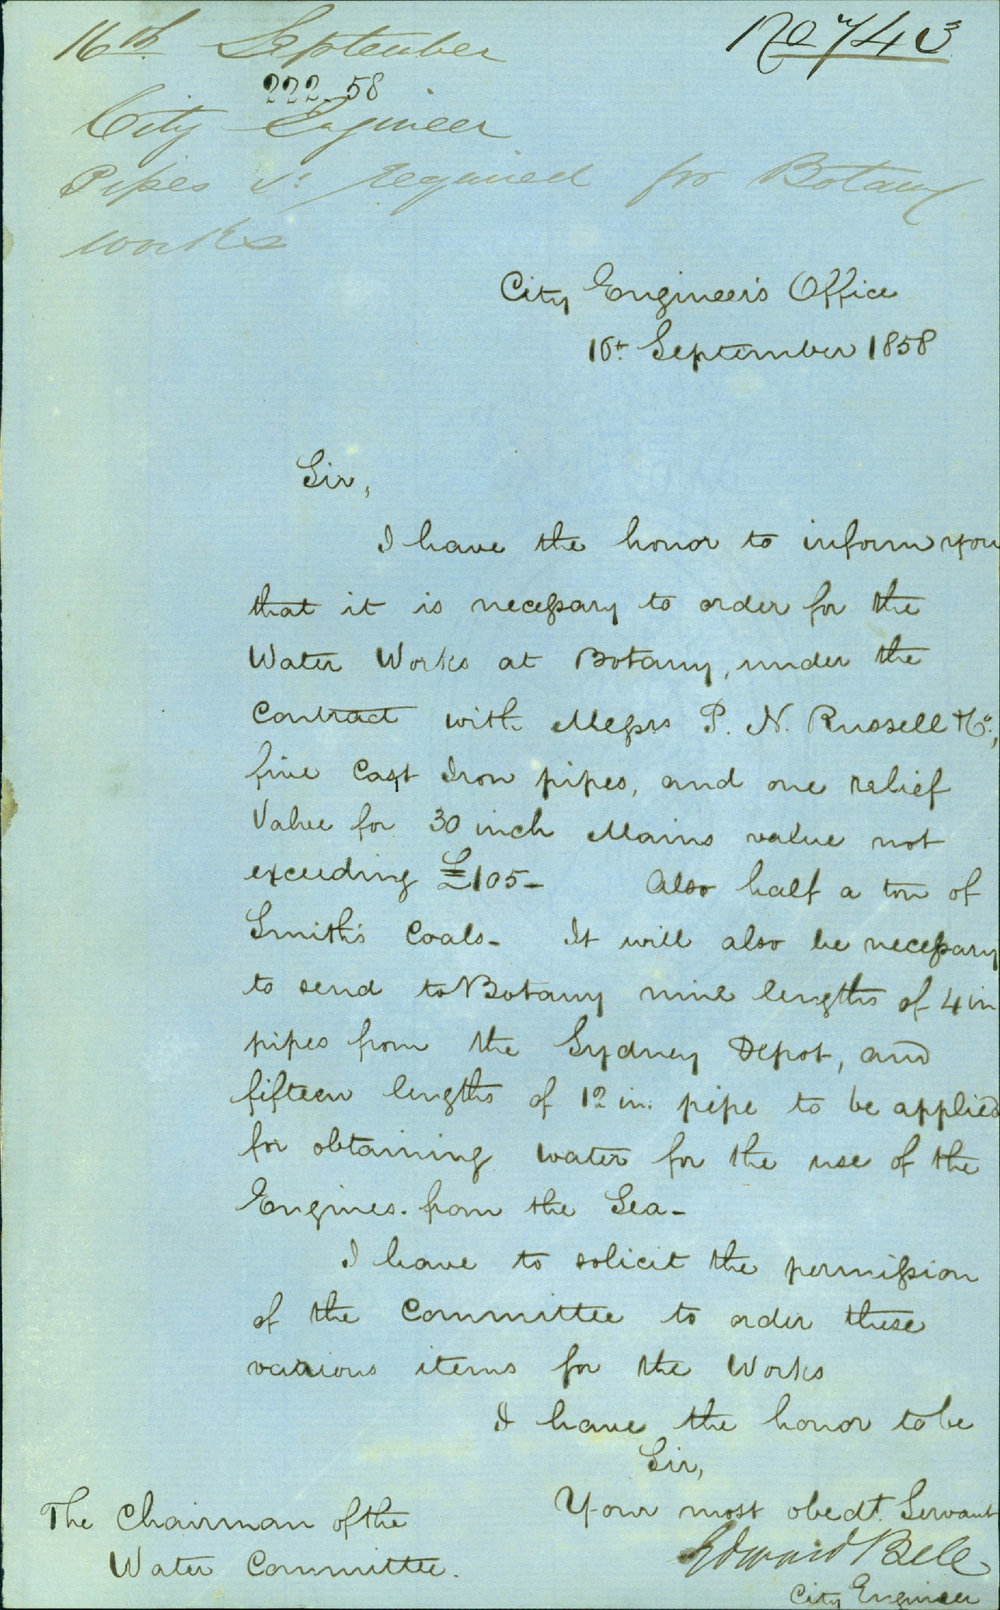 16th. September
No 743
222. 58
City Engineer
Pipes &c required for Botany
works
City Engineer's Office
16th September 1858
Sir,
I have the honor to inform you
that it is necessary to order for the
Water Works at Botany, under the
Contract with Messrs P. N. Russell & Co.,
five Cast Iron pipes, and one relief
Valve for 30 inch Mains value not
exceeding £105 – Also half a ton of
Smith's Coals – It will also be necessary
to send to Botany nine lengths of 4 in
pipes from the Sydney Depot, and
fifteen lengths of 12 in. pipe to be applied
for obtaining water for the use of the
Engines. from the Sea –
I have to solicit the permission
of the Committee to order these
various items for the Works
I have the honor to be
Sir,
Your most obedt. Servant
Edward Bell
City Engineer
The Chairman of the
Water Committee.